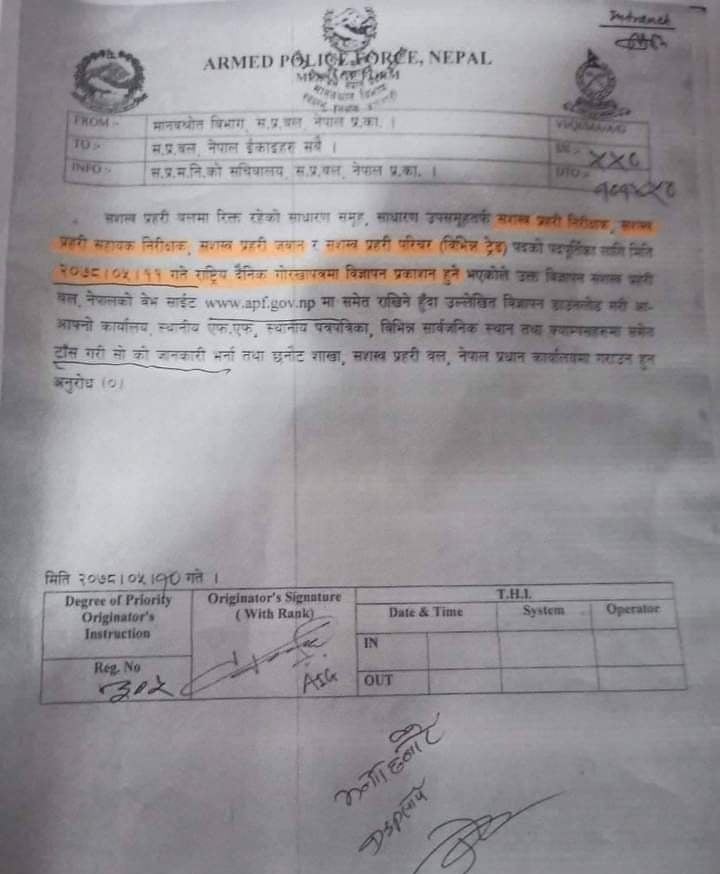 Intranet
ARMED POLICE FORCE, NEPAL
FROM :- मानवश्रोत विभाग, स.प्र.बल, नेपाल प्र.का. ।
TO :- स.प्र.बल, नेपाल ईकाइहरु सबै ।
INFO :- स.प्र.म.नि.को सचिवालय, स.प्र.बल, नेपाल प्र.का. ।
सशस्त्र प्रहरी बलमा रिक्त रहेको साधारण समूह, साधारण उपसमूहतर्फ सशस्त्र प्रहरी निरीक्षक, सशस्त्र
प्रहरी सहायक निरीक्षक, सशस्त्र प्रहरी जवान र सशस्त्र प्रहरी परिचर (विभिन्न ट्रेड) पदको पदपूर्तिका लागि मिति
२०७८।०५।११ गते राष्ट्रिय दैनिक गोरखापत्रमा विज्ञापन प्रकाशन हुने भएकोले उक्त विज्ञापन सशस्त्र प्रहरी
बल, नेपालको वेभ साईट www.apf.gov.np मा समेत राखिने हुँदा उल्लेखित विज्ञापन डाउनलोड गरी आ-
आफ्नो कार्यालय, स्थानीय एफ.एफ, स्थानीय पत्रपत्रिका, विभिन्न सार्वजनिक स्थान तथा क्याम्पसहरुमा समेत
टाँस गरी सो को जानकारी भर्ना तथा छनौट शाखा, सशस्त्र प्रहरी बल, नेपाल प्रधान कार्यालयमा गराउन हुन
अनुरोध (०)
मिति २०७८।०५।१० गते ।
Degree of Priority Originator's Instruction
Originator's Signature (With Rank)
T.H.I.
Date & Time System Operator
IN
Reg. No
AIG
OUT